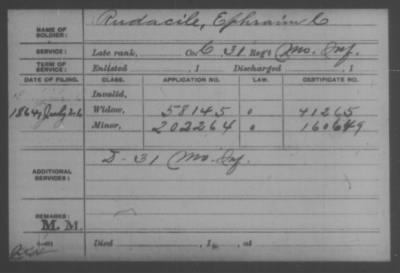 NAME OF SOLDIER: Rudacile, Ephraim C
SERVICE: Late rank, Co. C, 31 Reg't Mo. Inf.
TERM OF SERVICE: Enlisted , 1 Discharged , 1
DATE OF FILING. CLASS. APPLICATION NO. LAW. CERTIFICATE NO.
Invalid,
1864, July 26 Widow, 58145 0 41265
Minor, 202264 0 160649
ADDITIONAL SERVICES: D-31 Mo. Inf.
REMARKS:
M. M.
Died , 1 , at